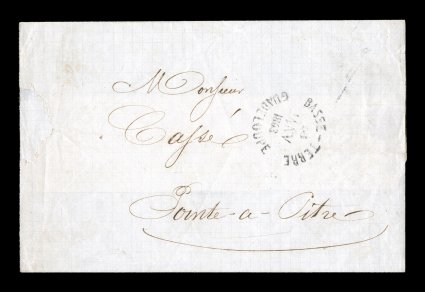 Monsieur
Cassé
Pointe-a-Pitre
BASSE-TERRE
MAY
1863
GUADELOUPE